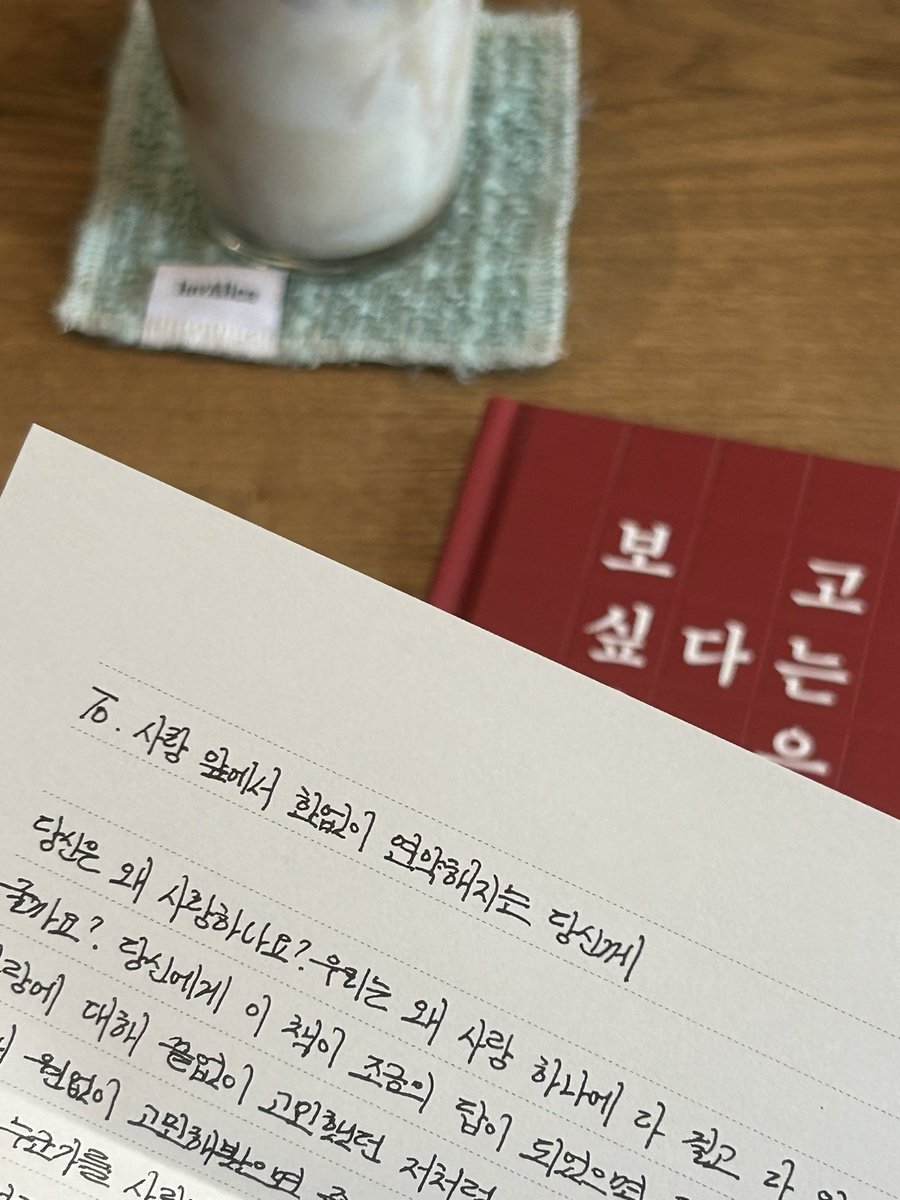 보 고
싶 다 는
To. 사랑 앞에서 한없이 연약해지는 당신께
당신은 왜 사랑하나요? 우리는 왜 사랑 하나에 다 걸고 다
당신에게 이 책이 조금의 답이 되었으면
대해 끝없이 고민했던 저처럼
원없이 고민해봤으면
누군가를